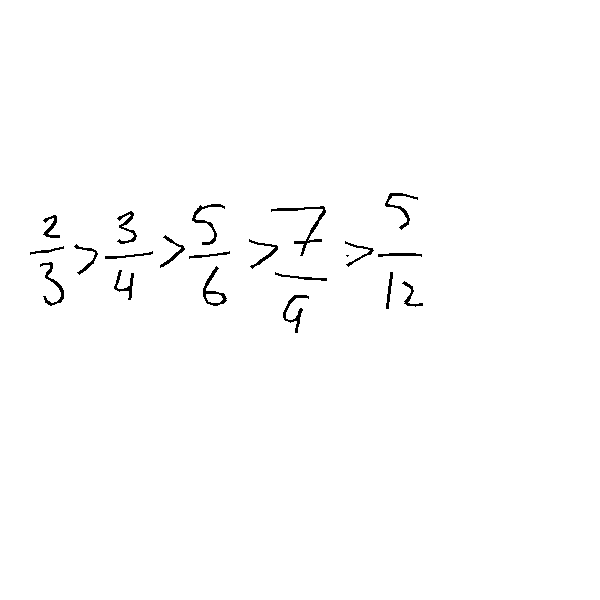 2/3 > 3/4 > 5/6 > 7/9 > 5/12